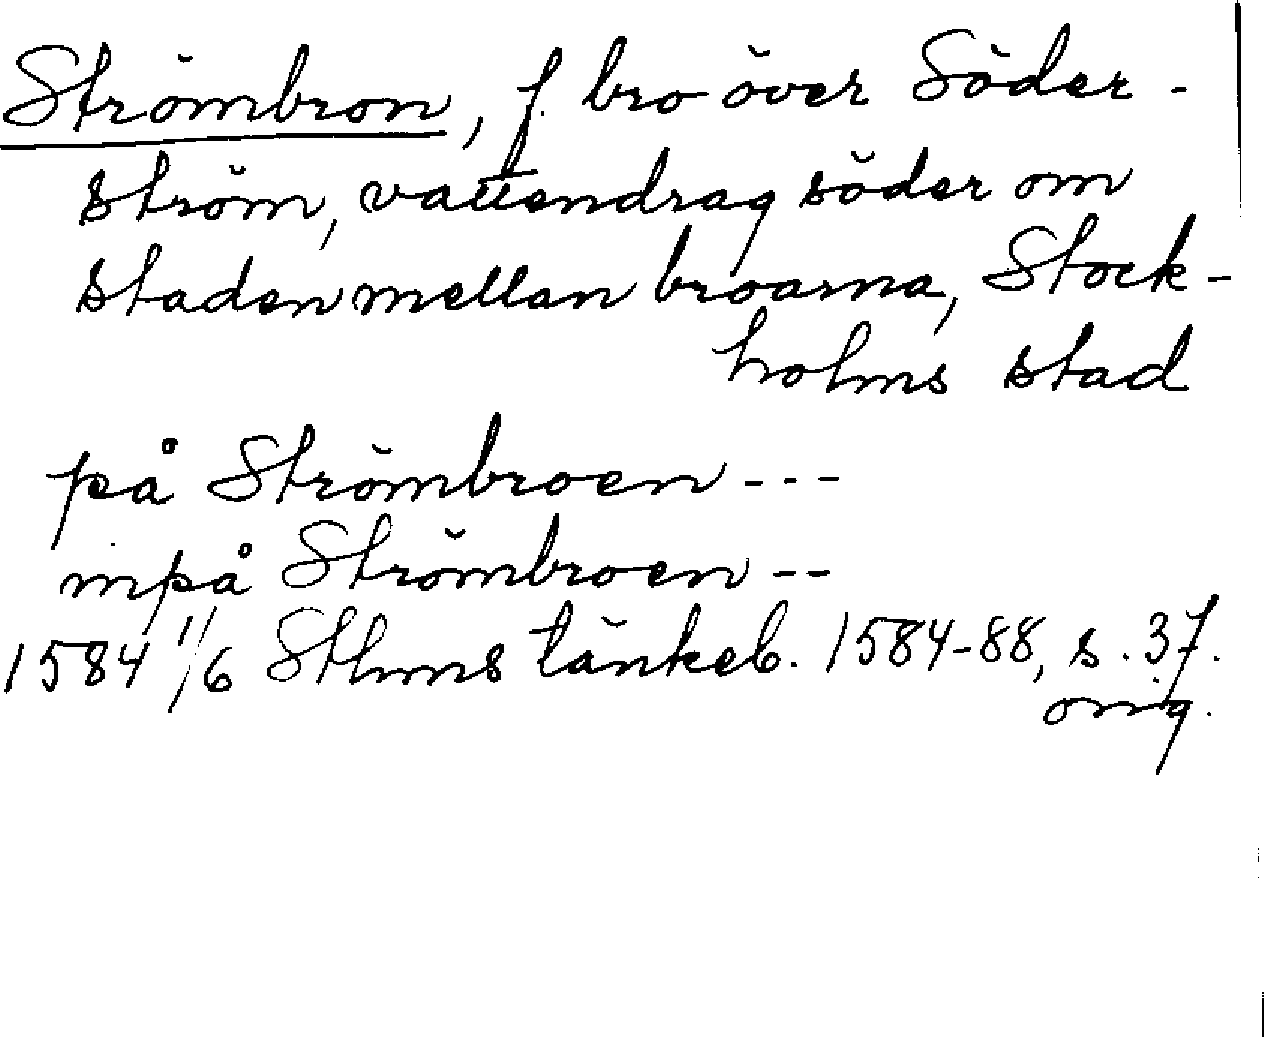 Strömbron, f. bro över Söder-
ström, vattendrag söder om
staden mellan broarna, Stock-
holms stad
på Strömbroen ---
inpå Strömbroen --
1584 11/6 Sthms tänkeb. 1584-88, s. 37.
orig.